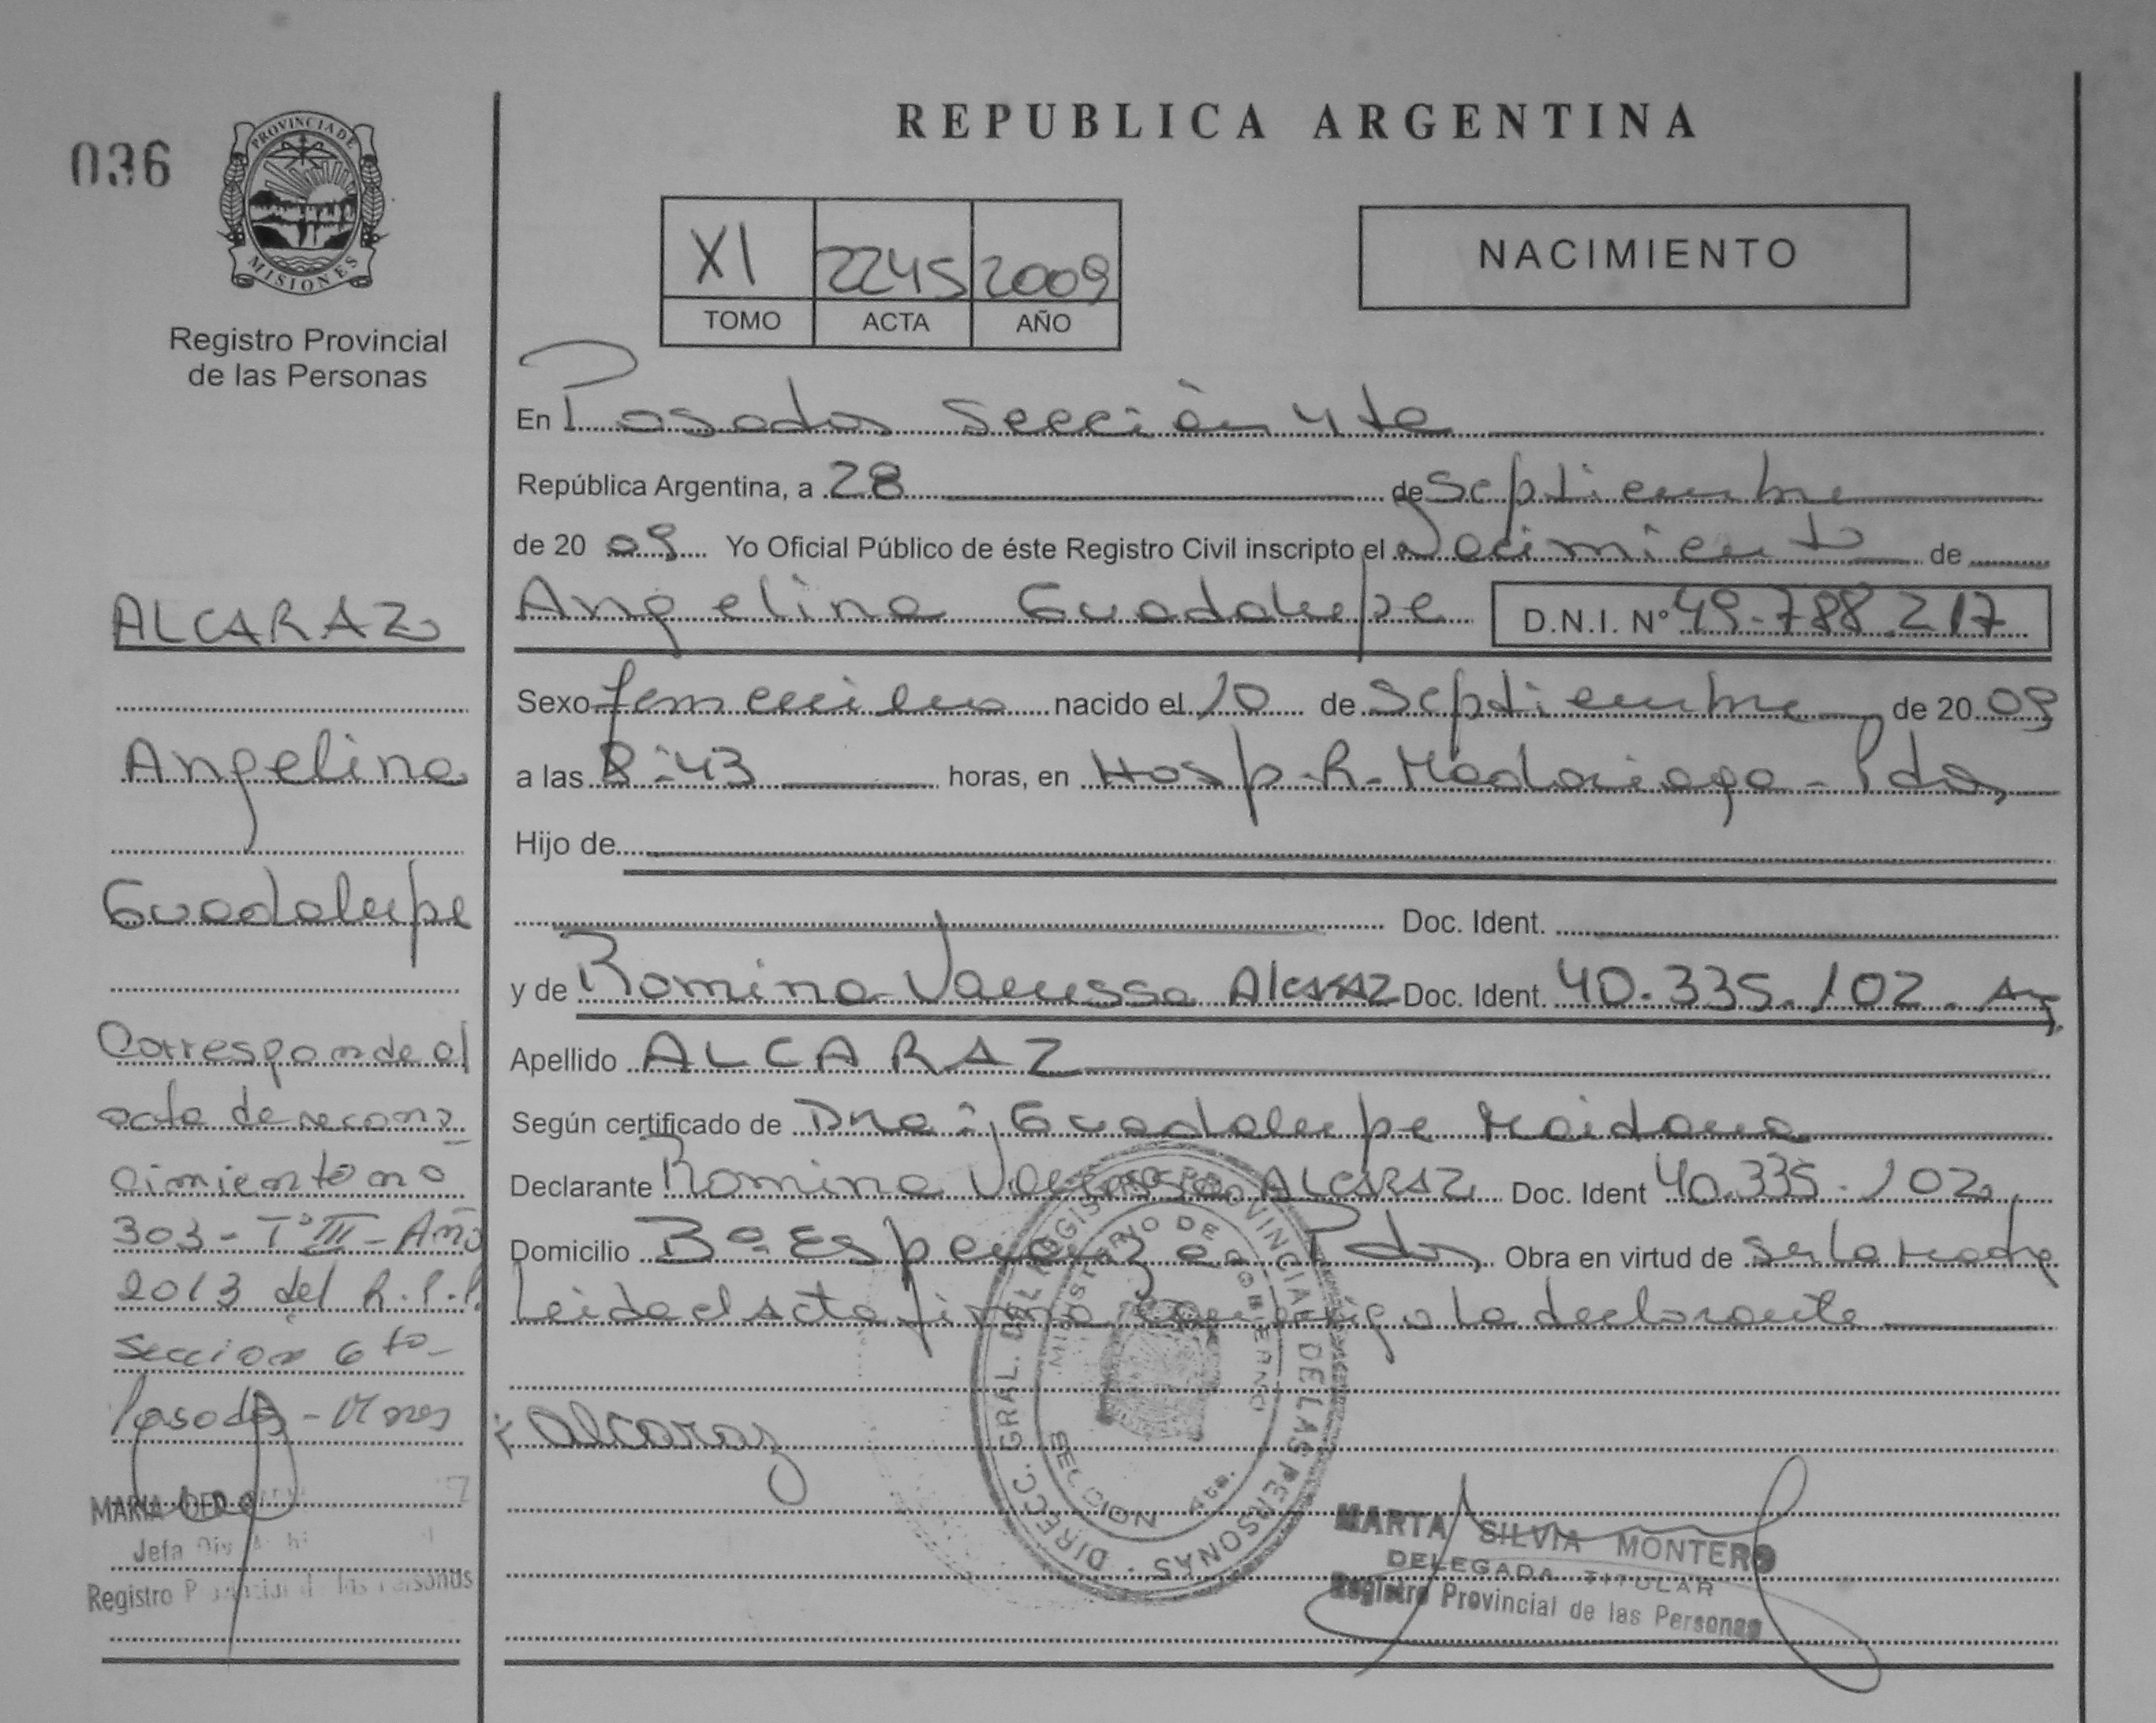 036
PROVINCIA DE
MISIONES
Registro Provincial
de las Personas
ALCARAZ
Angelina
Guadalupe
Corresponde al
acta de recono
cimiento nº
303 - Tº III - Año
2013 del R.P.P.
Sección 6 ta
Posadas - Mnes
MARIA
Jefa Div
Registro Provincial de las Personas
REPUBLICA ARGENTINA
XI 2245 2009
TOMO ACTA AÑO
NACIMIENTO
En Posadas Sección 4 ta
República Argentina, a 28 de Septiembre
de 20 09 Yo Oficial Público de éste Registro Civil inscripto el Nacimiento de
Angelina Guadalupe D.N.I. Nº 49.788.217
Sexo femenino nacido el 10 de Septiembre de 20 09
a las 8:43 horas, en Hosp. R. Madariaga - Pdas
Hijo de
Doc. Ident.
y de Romina Vanessa Alcaraz Doc. Ident. 40.335.102. Arg.
Apellido ALCARAZ
Según certificado de Dra: Guadalupe Maidana
Declarante Romina Vanessa ALCARAZ Doc. Ident 40.335.102
Domicilio Bº Esperanza Pdas Obra en virtud de ser la madre
Leida el acta firma conmigo la declarante
Alcaraz
DIRECC. GRAL. DEL REGISTRO PROVINCIAL DE LAS PERSONAS
MINISTERIO DE GOBIERNO
SECCION 4ta.
MARTA SILVIA MONTERO
DELEGADA TITULAR
Registro Provincial de las Personas